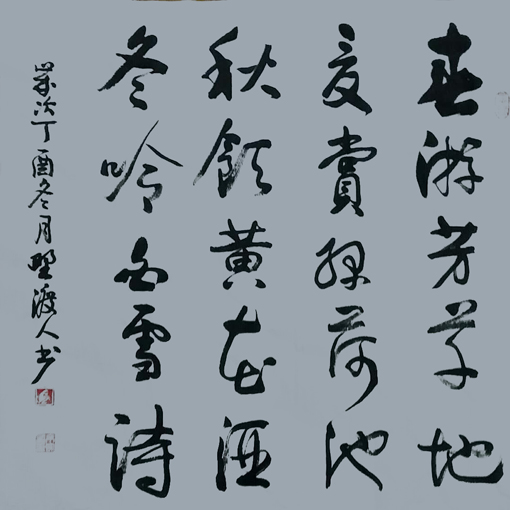 春游芳草地
夏賞绿荷池
秋飲黄花酒
冬吟白雪诗
嵗次丁酉冬月野渡人书